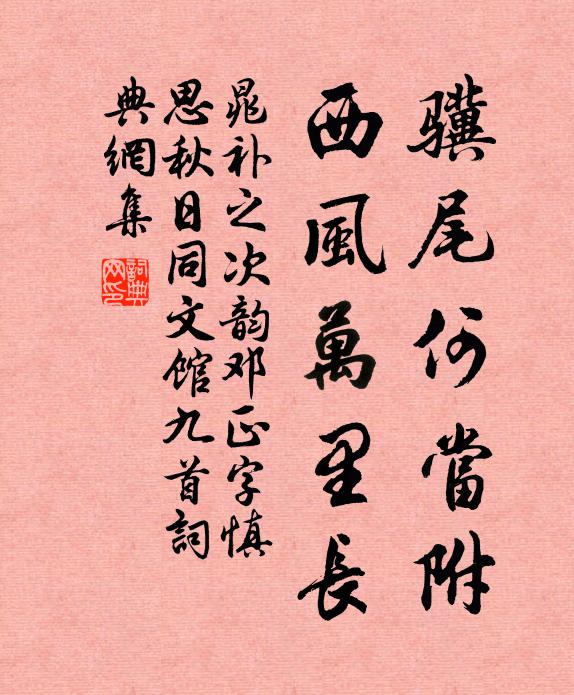 骥尾何當附
西風萬里長
晁补之次韵邓正字慎
思秋日同文馆九首詞
典網集
詞典
网印